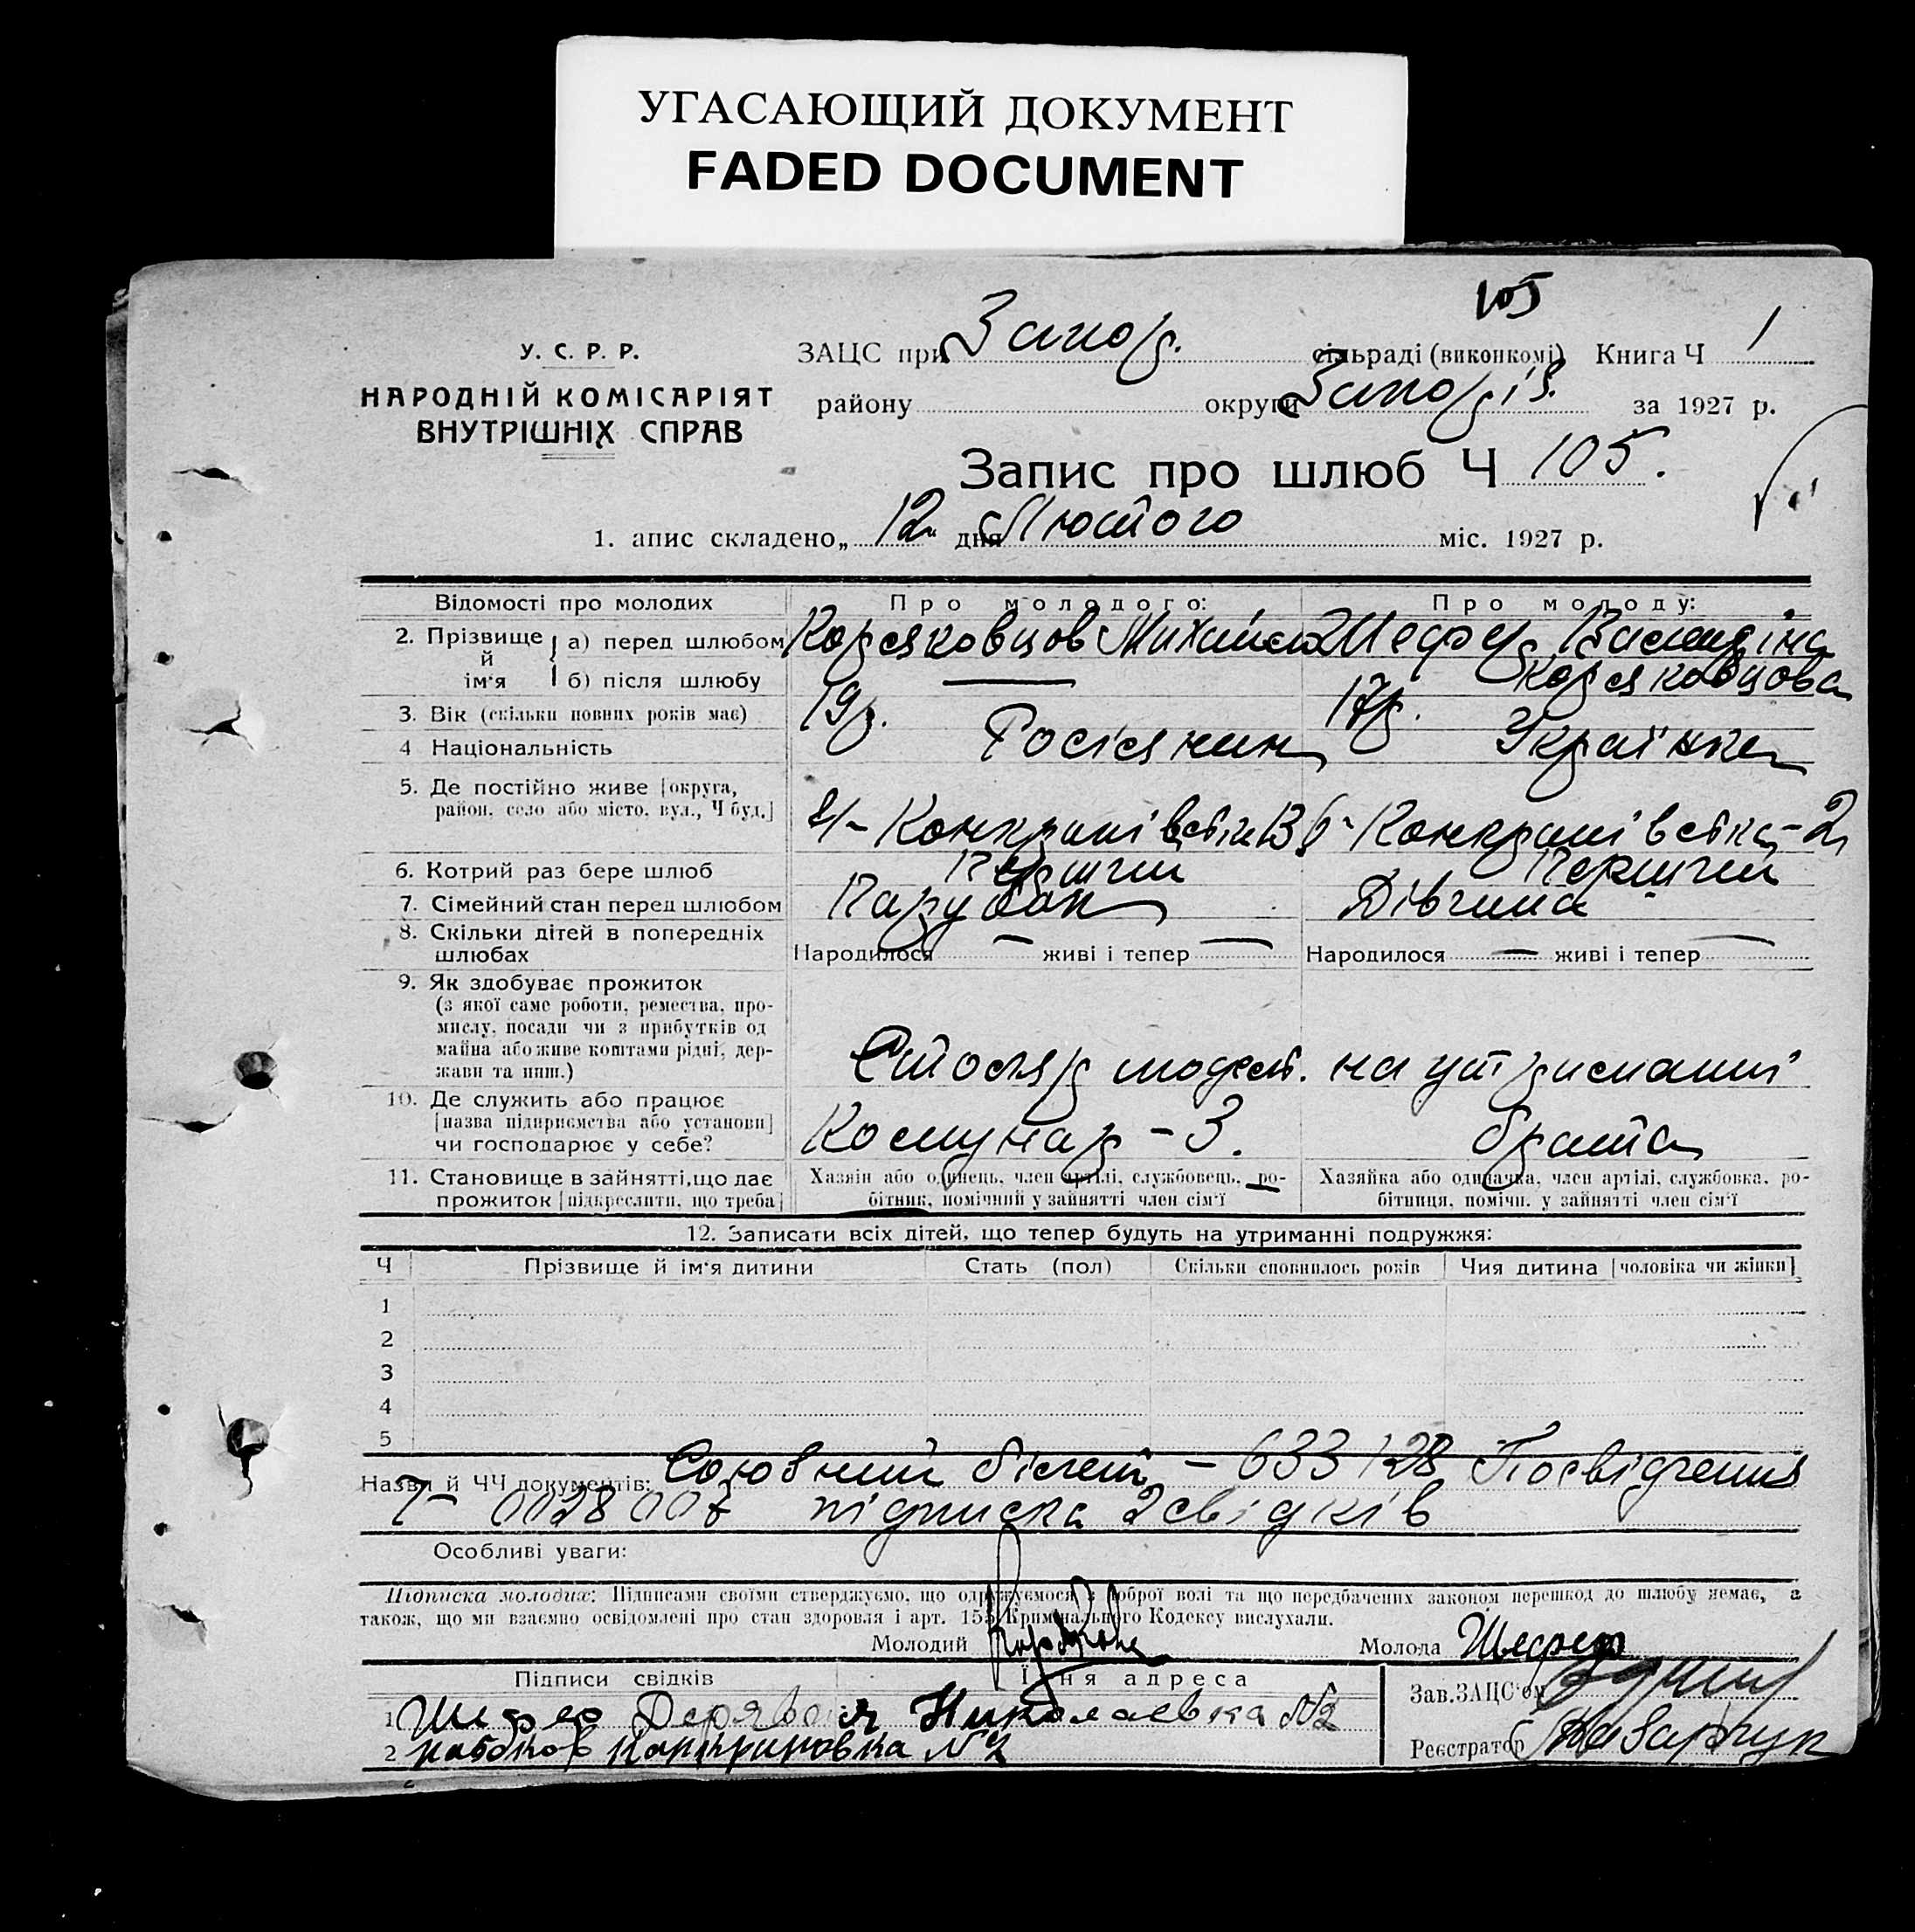 УГАСАЮЩИЙ ДОКУМЕНТ
FADED DOCUMENT
105
У. С. Р. Р.
НАРОДНІЙ КОМІСАРІЯТ
ВНУТРІШНІХ СПРАВ
ЗАЦС при Запор. сільраді (виконкомі) Книга Ч 1
району округи Запоріз. за 1927 р.
Запис про шлюб Ч 105.
1. апис складено „12" дня Лютого міс. 1927 р.
Відомості про молодих Про молодого: Про молоду:
2. Прізвище й ім'я а) перед шлюбом Корсяковцов Михайло Шефер
б) після шлюбу — Корсяковцова
3. Вік (скільки повних років має) 19 р. 17 р.
4 Національність Росіянин Українка
5. Де постійно живе [округа,
район, село або місто, вул., Ч буд.]
6. Котрий раз бере шлюб Перший Перший
7. Сімейний стан перед шлюбом Парубок Дівчина
8. Скільки дітей в попередніх
шлюбах Народилося — живі і тепер — Народилося — живі і тепер —
9. Як здобуває прожиток
(з якої саме роботи, ремества, про-
мислу, посади чи з прибутків од
майна або живе коштами рідні, дер-
жави та инш.) Столяр модел. на утриманні
10. Де служить або працює
[назва підприємства або установи]
чи господарює у себе? Комунар - 3. брата
11. Становище в зайнятті, що дає
прожиток [підкреслити, що треба]
Хазяїн або одинець, член артілі, службовець, ро-
бітник, помічний у зайнятті член сім'ї
Хазяйка або одиначка, член артілі, службовка, ро-
бітниця, помічн. у зайнятті член сім'ї
12. Записати всіх дітей, що тепер будуть на утриманні подружжя:
Ч Прізвище й ім'я дитини Стать (пол) Скільки сповнилось років Чия дитина [чоловіка чи жінки]
1
2
3
4
5
Назви й ЧЧ документів: Союзний білет - 633128 Посвідчення
7- 0028007 підписка 2 свідків
Особливі уваги:
Підписка молодих: Підписами своїми стверджуємо, що одружуємося з доброї волі та що передбачених законом перешкод до шлюбу немає, а
також, що ми взаємно освідомлені про стан здоровля і арт. 155 Кримінального Кодексу вислухали.
Молодий Молода Шефер
Підписи свідків Їхня адреса
1 Шефер Николаевка №2
2 Кантеровка №2
Зав. ЗАЦС'ом
Реєстратор